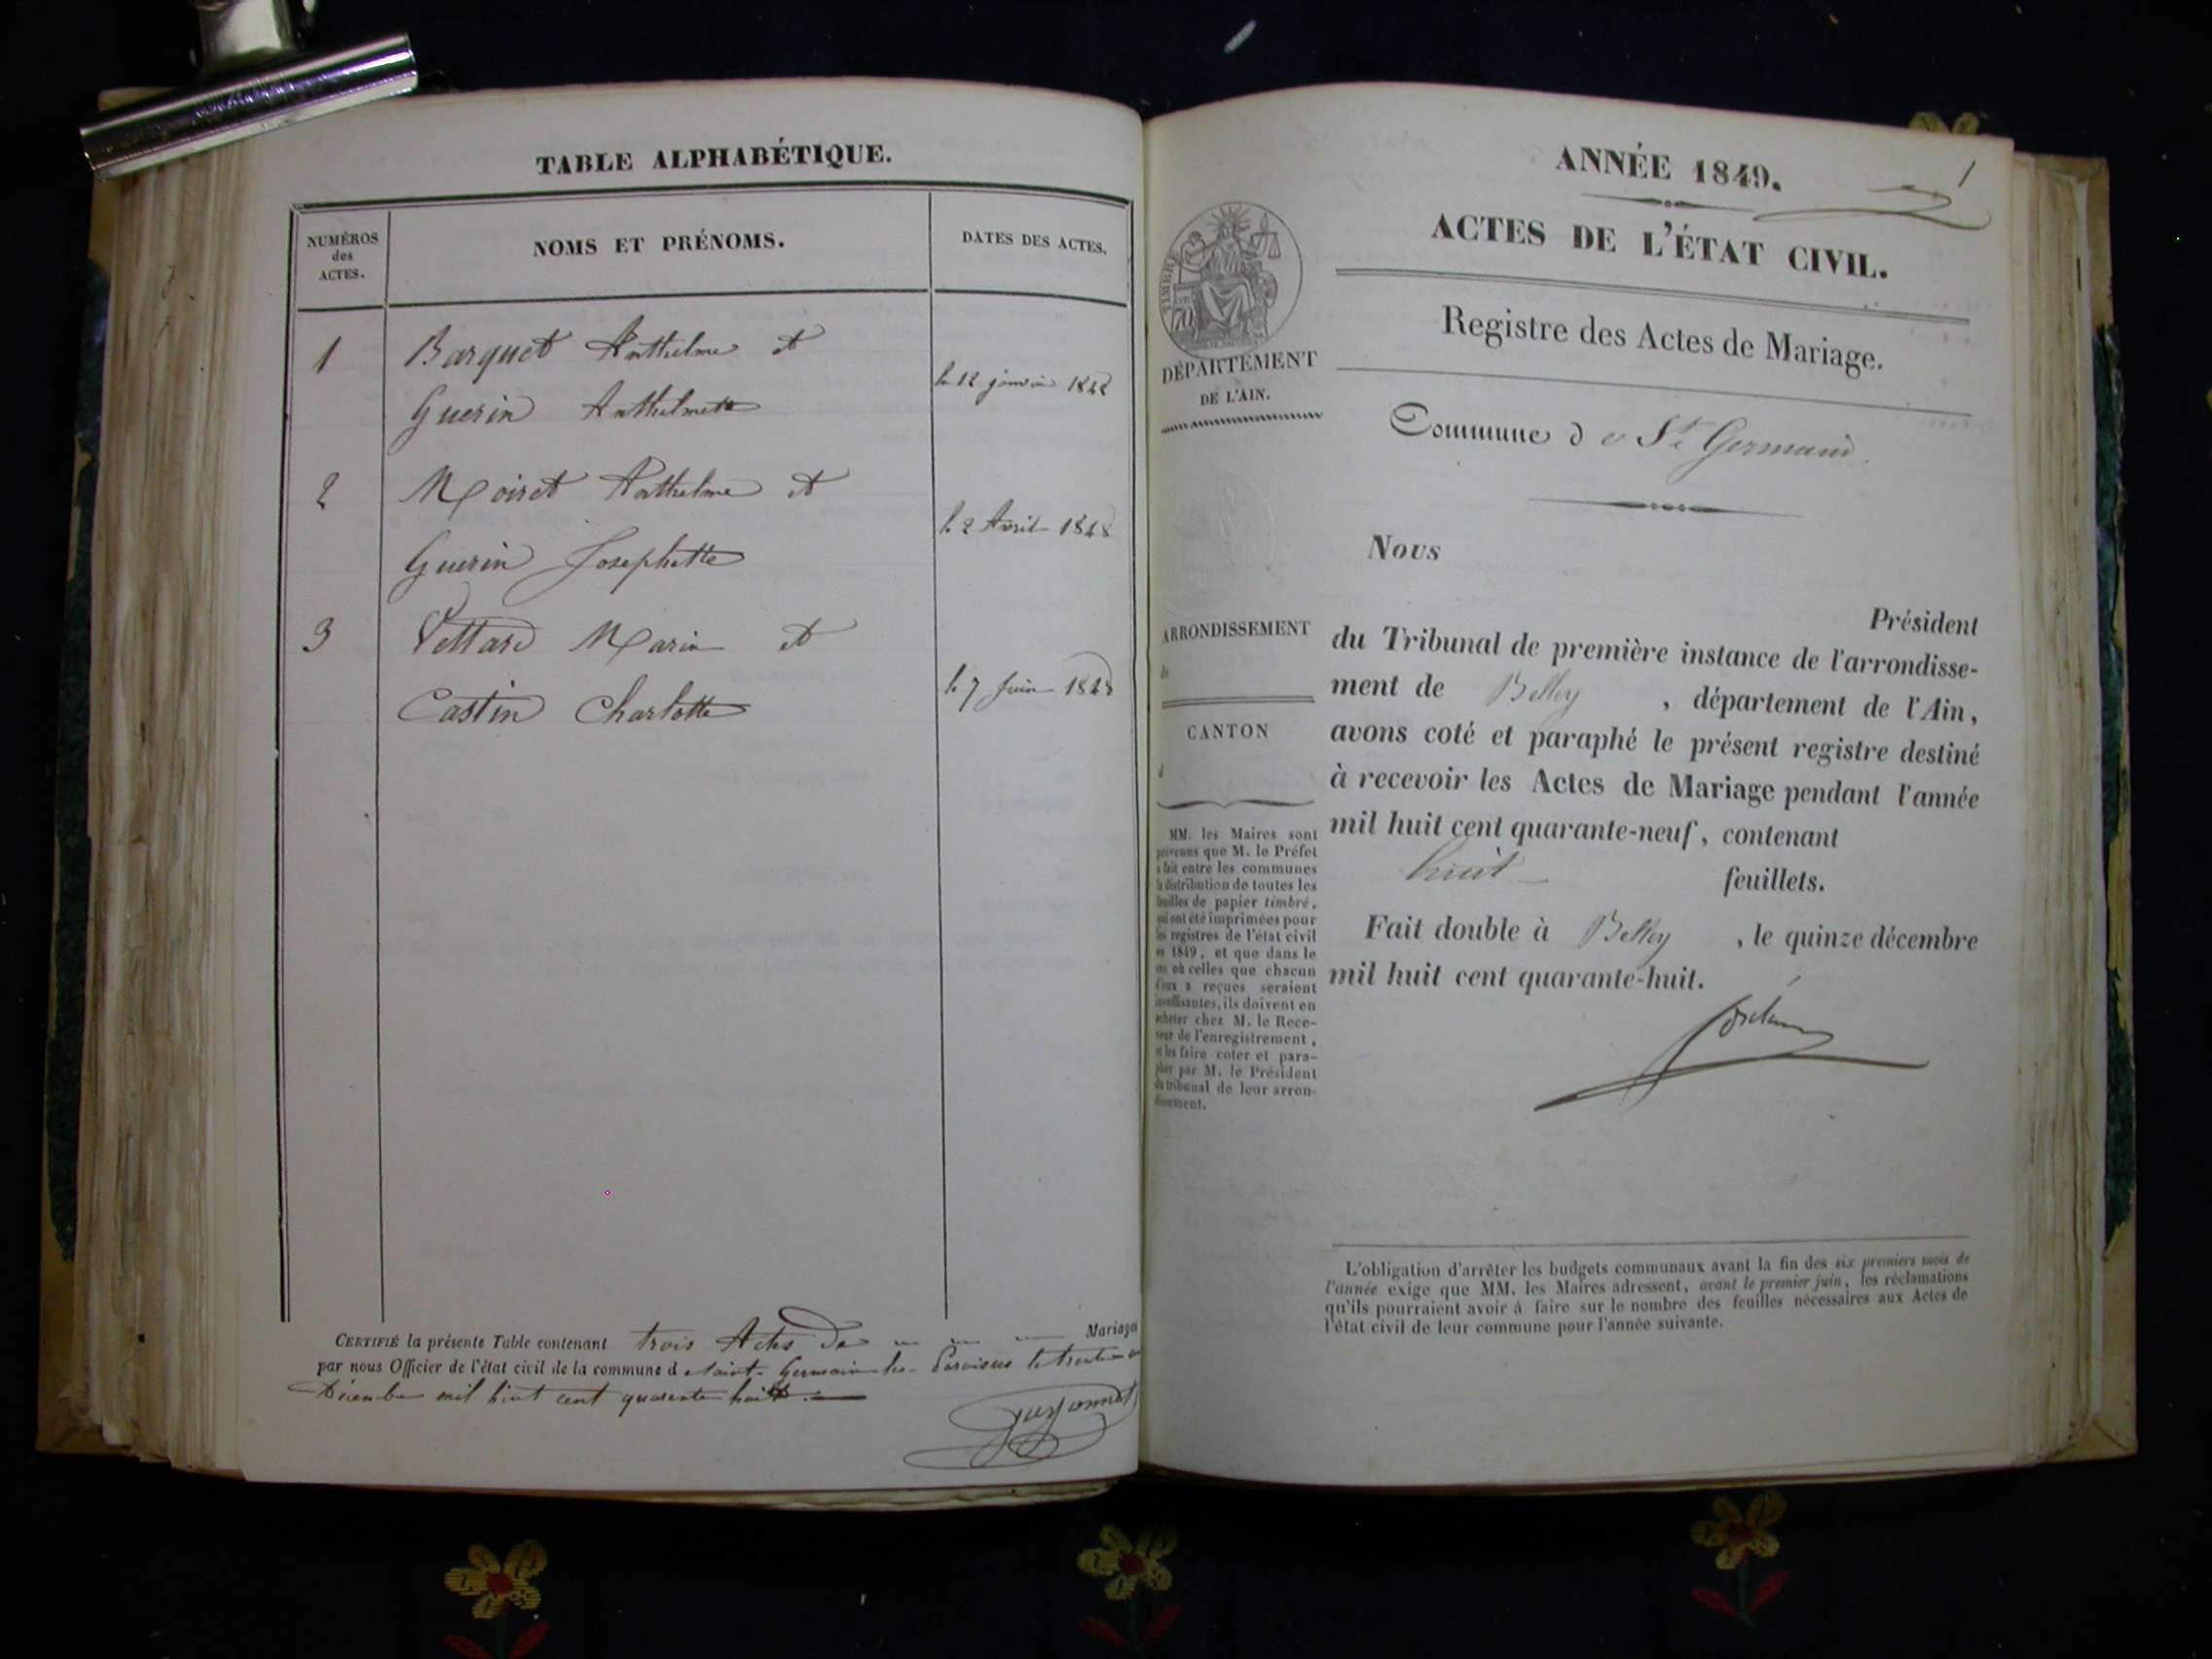 TABLE ALPHABÉTIQUE.
NUMÉROS
des
ACTES.
NOMS ET PRÉNOMS.
DATES DES ACTES.
1
Barquet Anthelme et
Guerin Anthelmette
le 12 janvier 1848
2
Moiret Anthelme et
Guerin Josephette
le 2 Avril 1848
3
Vettard Marin et
Castin Charlotte
le 7 Juin 1848
CERTIFIÉ la présente Table contenant trois Actes de Mariages
par nous Officier de l'état civil de la commune d Saint-Germain-les-Paroisses le trente
Décembre mil huit cent quarante huit.
1
ANNÉE 1849.
ACTES DE L'ÉTAT CIVIL.
Registre des Actes de Mariage.
TIMBRE
70
DÉPARTEMENT
DE L'AIN.
Commune de St Germain
ARRONDISSEMENT
de
CANTON
d
MM. les Maires sont
prévenus que M. le Préfet
a fait entre les communes
la distribution de toutes les
feuilles de papier timbré,
qui ont été imprimées pour
les registres de l'état civil
en 1849, et que dans le
cas où celles que chacun
d'eux a reçues seraient
insuffisantes, ils doivent en
acheter chez M. le Rece-
veur de l'enregistrement,
et les faire coter et para-
pher par M. le Président
du tribunal de leur arron-
dissement.
Nous
Président
du Tribunal de première instance de l'arrondisse-
ment de Belley, département de l'Ain,
avons coté et paraphé le présent registre destiné
à recevoir les Actes de Mariage pendant l'année
mil huit cent quarante-neuf, contenant
huit feuillets.
Fait double à Belley, le quinze décembre
mil huit cent quarante-huit.
L'obligation d'arrêter les budgets communaux avant la fin des six premiers mois de
l'année exige que MM. les Maires adressent, avant le premier juin, les réclamations
qu'ils pourraient avoir à faire sur le nombre des feuilles nécessaires aux Actes de
l'état civil de leur commune pour l'année suivante.